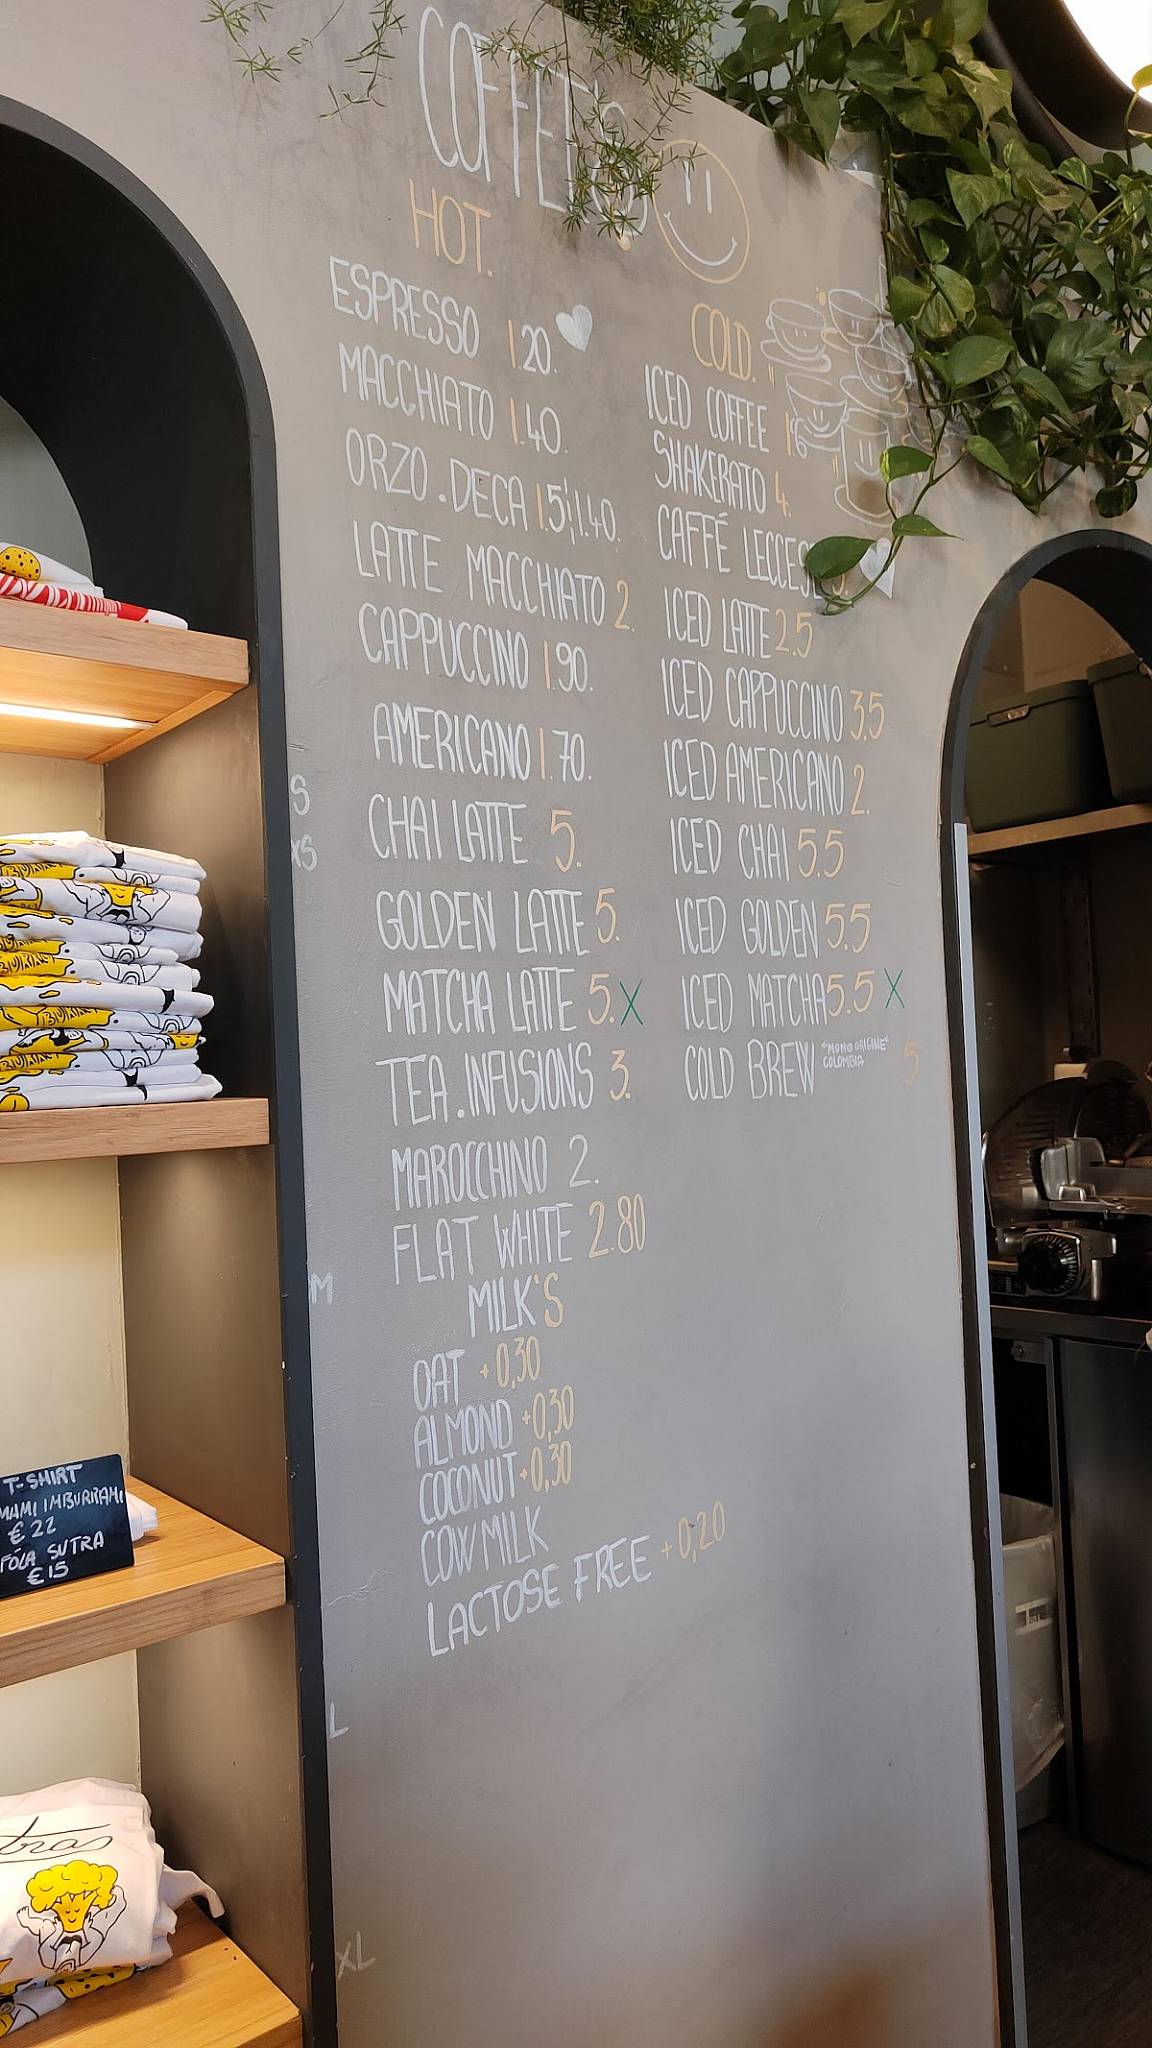 COFFEE'S
HOT.
ESPRESSO 1.20.
MACCHIATO 1.40.
ORZO.DECA 1.5;1.40.
LATTE MACCHIATO 2.
CAPPUCCINO 1.90.
AMERICANO 1.70.
CHAI LATTE 5.
GOLDEN LATTE 5.
MATCHA LATTE 5. X
TEA.INFUSIONS 3.
MAROCCHINO 2.
FLAT WHITE 2.80
MILK'S
OAT +0,30
ALMOND +0,30
COCONUT +0,30
COW MILK
LACTOSE FREE +0,20
COLD.
ICED COFFEE
SHAKERATO 4.
CAFFÉ
ICED LATTE 2.5
ICED CAPPUCCINO 3.5
ICED AMERICANO 2.
ICED CHAI 5.5
ICED GOLDEN 5.5
ICED MATCHA 5.5 X
COLD BREW "MONO ORIGINE" COLOMBIA 5
S
XS
M
L
XL
T-SHIRT
€22
SUTRA
€15